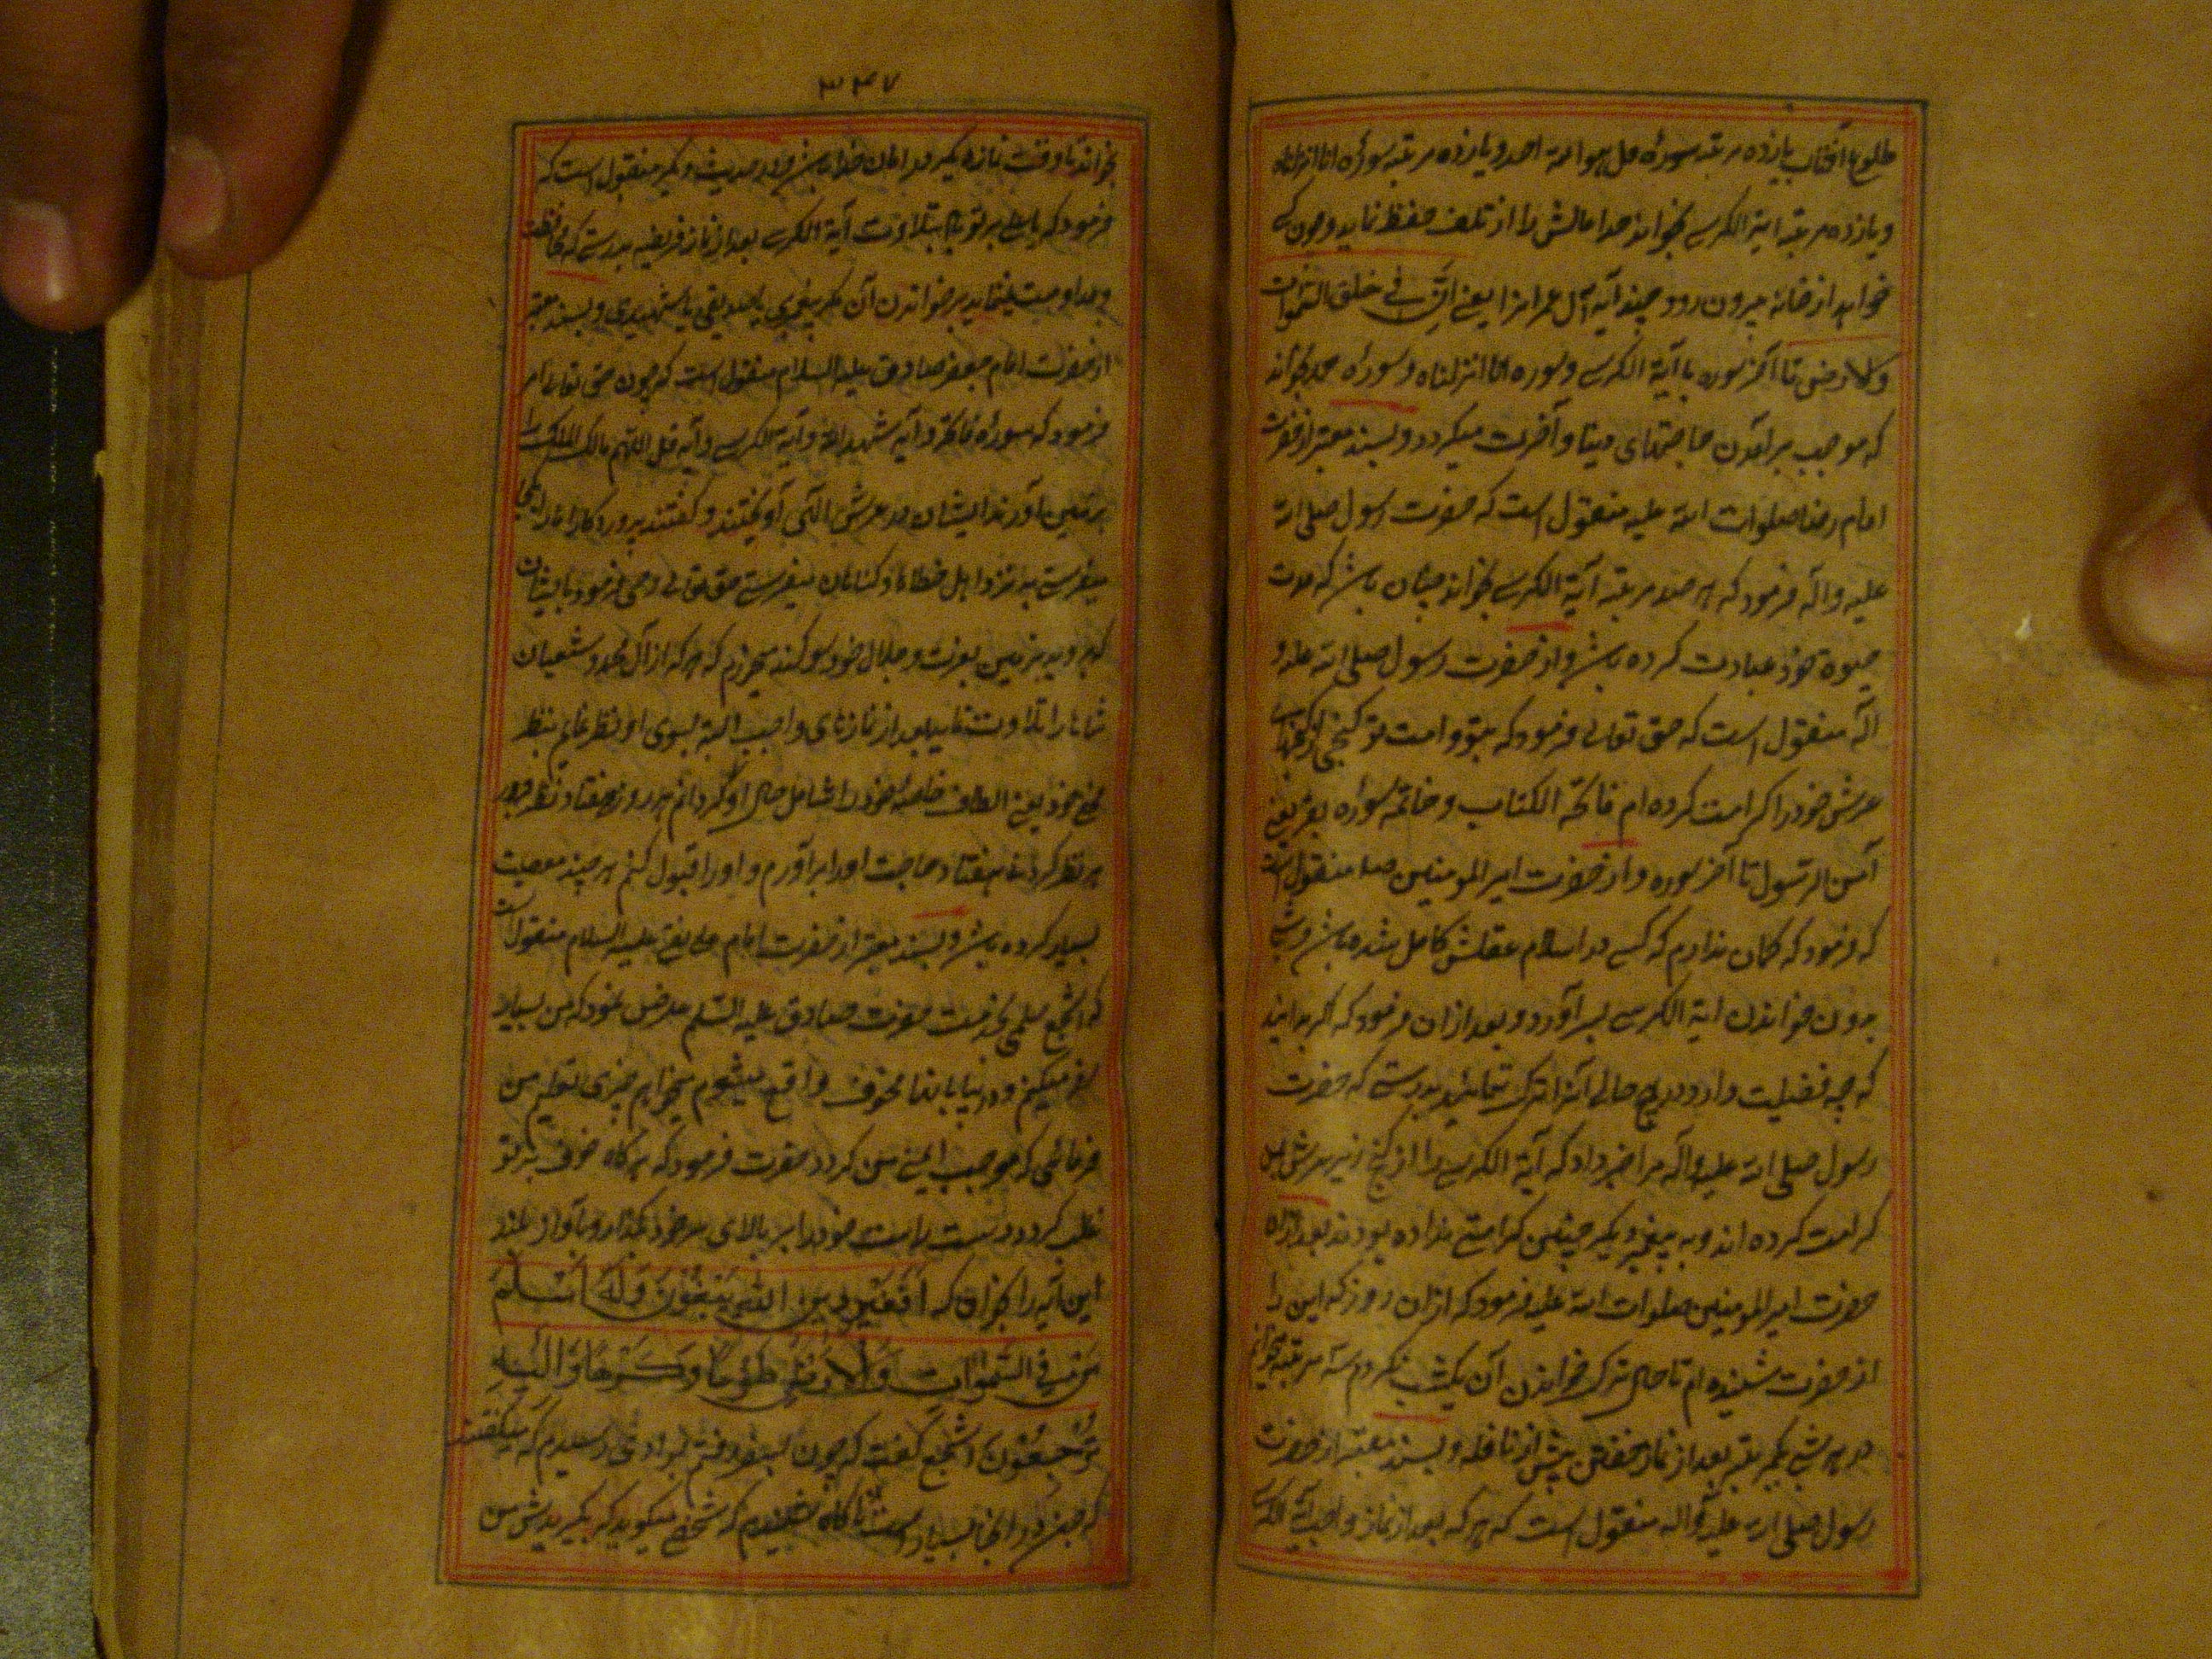 طلوع افتاب یازده مرتبه سوره قل هو الله احد و یازده مرتبه سوره انا انزلناه
و یازده مرتبه ایة الکرسی بخواند خدا مالش را از تلف حفظ نماید و چون کسی
خواهد از خانه بیرون رود چند آیه آل عمرانرا یعنی اِنَّ فی خلق السموات
والارض تا آخر سوره با آیة الکرسی و سوره انا انزلناه و سوره حمد بخواند
که موجب برآمدن حاجتهای دنیا و آخرت میگردد و بسند معتبر از حضرت
امام رضا صلوات الله علیه منقول است که حضرت رسول صلی الله
علیه و آله فرمود که هر صد مرتبه آیة الکرسی بخواند چنان باشد که مدت
حیوة خود عبادت کرده باشد و از حضرت رسول صلی الله علیه و
اله منقول است که حق تعالی فرمود که بتو و امت تو گنجی از گنجهای
عرش خود را کرامت کرده ام فاتحة الکتاب و خاتمه سوره بقر یعنی
آمن الرسول تا آخر سوره و از حضرت امیر المومنین منقول است
که فرمود که گمان ندارم که کسی در اسلام عقلش کامل شده باشد و شبی
بدون خواندن ایة الکرسی بسر آورد و بعد ازان فرمود که اگر بدانید
که چه فضیلت دارد در هیچ حالی آنرا ترک ننمائید بدرستی که حضرت
رسول صلی الله علیه و آله مرا خبر داد که آیة الکرسی را از گنج زیر عرش بمن
کرامت کرده اند و به پیغمبر دیگر چنین کرامتی نداده بودند بعد ازان
حضرت امیر المومنین صلوات الله علیه فرمود که ازان روز که این را
از حضرت شنیده ام تا حال ترک خواندن آن یکشب نکردم سه مرتبه میخوانم
در هر شب یکمرتبه بعد از نماز خفتن پیش از نافله و بسند معتبر از حضرت
رسول صلی الله علیه و آله منقول است که هر که بعد از نماز واجب آیة الکرسی
۳۴۷
بخواند تا وقت نماز دیگر در امان خدا باشد و در حدیث دیگر منقول است که
فرمود که یا علی بر تو باد بتلاوت آیة الکرسی بعد از نماز فریضه بدرستی که محافظت
و مداومت نمینماید بر خواندن آن مگر پیغمبری یا صدیقی یا شهیدی و بسند معتبر
از حضرت امام جعفر صادق علیه السلام منقول است که چون حق تعالی امر
فرمود که سوره فاتحه و آیه شهد الله و آیة الکرسی و آیه قل اللهم مالک الملک را
بزمین آورند ایشان در عرش الهی آویختند و گفتند پروردگارا ما را
میفرستی بنزد اهل خطاها و گناهان میفرستی حق تعالی وحی فرمود بایشان
که بروید بزمین بعزت و جلال خود سوگند میخورم که هر که از آل محمد و شیعیان
شما را تلاوت نماید بعد از نمازهای واجب البته بسوی او نظر نمایم بنظر
خود یعنی الطاف خاصه خود را شامل حال او گردانم هر روز هفتاد نظر و در
هر نظر کردن هفتاد حاجت او را برآورم و او را قبول کنم هر چند معصیت
بسیار کرده باشد و بسند معتبر از حضرت امام علی نقی علیه السلام منقول است
که اشجع سلمی بخدمت حضرت صادق علیه السلم عرض نمود که من بسیار
سفر میکنم و در بیابانها مخوف واقع میشوم میخواهم چیزی تعلیم من
فرمائی که موجب ایمنی من گردد حضرت فرمود که هر گاه خوف بر تو
غلبه کرد دست راست خود را بر بالای سر خود بگذار و باواز بلند
این آیه را بخوان که اَفَغَیْرَ دِینِ اللهِ یَبْغُونَ وَلَهُ اَسْلَمَ
مَنْ فِی السَّمٰوَاتِ وَالْاَرْضِ طَوْعًا وَکَرْهًا وَاِلَیْهِ
تُرْجَعُونَ اشجع گفت که چون بسفر رفتم بوادی رسیدم که میگفتند
که جن در انجا بسیار است ناگاه شنیدم که شخصی میگوید که بگیریدش من